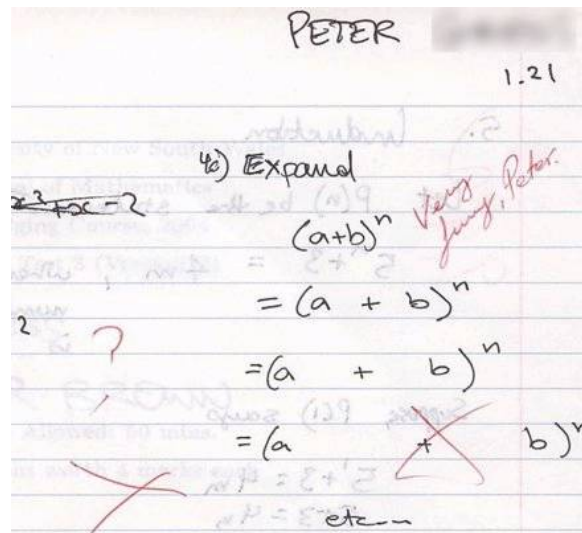 PETER
1.21
4c) Expand
Very
funny, Peter.
(a+b)^n
= (a + b)^n
2
?
=(a + b)^n
=(a + b)^n
etc...